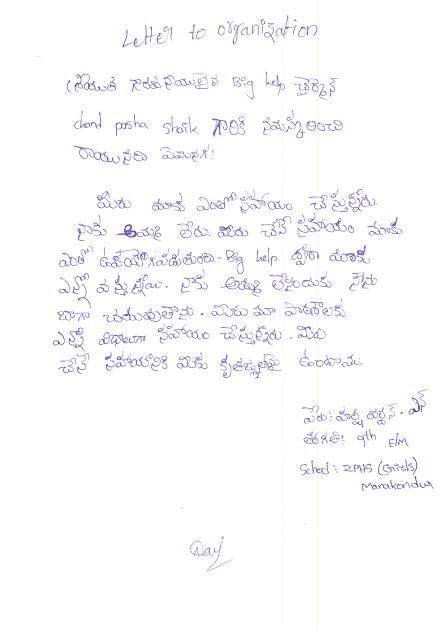 Letter to organization
శ్రీయుత గౌరవనీయులైన Big help ఛైర్మెన్
chand pasha shaik గారికి నమస్కరించి
రాయునది ఏమనగా!
మీరు మాకు ఎంతో సహాయం చేస్తున్నారు.
నాకు అమ్మ లేరు. మీరు చేసే సహాయం మాకు
ఎంతో ఉపయోగపడుతుంది. Big help ద్వారా మాకు
ఎన్నో వస్తున్నాయి. నాకు అమ్మ లేనందుకు నేను
బాగా చదువుతాను. మీరు మా పాఠశాలకు
ఎన్నో విధాలుగా సహాయం చేస్తున్నారు. మీరు
చేసే సహాయానికి మీకు కృతజ్ఞులై ఉంటాము.
పేరు: వర్ధన్. ఎస్
తరగతి: 9th E/M
School: ZPHS (Girls)
Marakondur